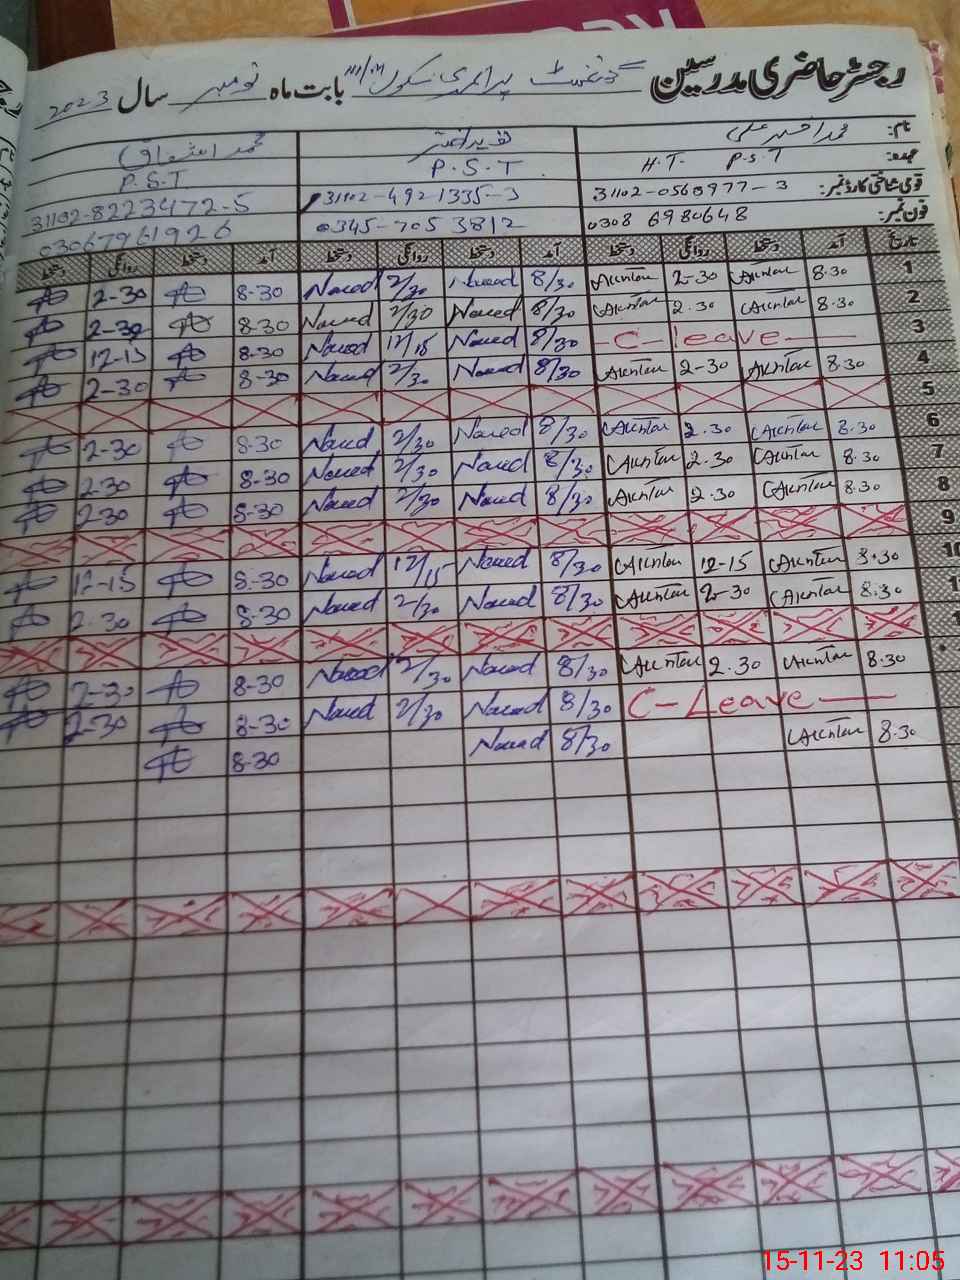 رجسٹر حاضری مدرسین گورنمنٹ پرائمری سکول بابت ماہ نومبر سال 2023
نام: محمد اختر علی محمد اشفاق
عہدہ: H.T. P.S.T P.S.T P.S.T
قومی شناختی کارڈ نمبر: 31102-0560977-3 31102-4921335-3 31102-8223472-5
فون نمبر: 0308 6980648 0345-705 3812 03067961926
تاریخ آمد دستخط روانگی دستخط آمد دستخط روانگی دستخط آمد دستخط روانگی دستخط
1 8.30 Akhtar 2-30 Akhtar 8/30 Naved 2/30 Naved 8-30 2-30
2 8.30 Akhtar 2.30 Akhtar 8/30 Naved 2/30 Naved 8-30 2-30
3 C-leave 8/30 Naved 12/15 Naved 8-30 12-15
4 8.30 Akhtar 2-30 Akhtar 8/30 Naved 2/30 Naved 8-30 2-30
5
6 8.30 Akhtar 2.30 Akhtar 8/30 Naved 2/30 Naved 8-30 2-30
7 8.30 Akhtar 2.30 Akhtar 8/30 Naved 2/30 Naved 8-30 2-30
8 8.30 Akhtar 2.30 Akhtar 8/30 Naved 2/30 Naved 8-30 2-30
9
10 8.30 Akhtar 12-15 Akhtar 8/30 Naved 12/15 Naved 8-30 12-15
1 8.30 Akhtar 2-30 Akhtar 8/30 Naved 2/30 Naved 8-30 2-30
1
8.30 Akhtar 2.30 Akhtar 8/30 Naved 2/30 Naved 8-30 2-30
C-Leave 8/30 Naved 2/30 Naved 8-30 2-30
8.30 Akhtar 8/30 Naved 8-30
15-11-23 11:05